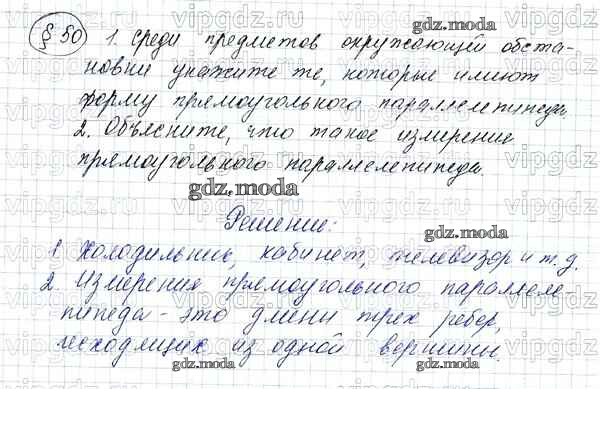 § 50
1. Среди предметов окружающей обста-
новки укажите те, которые имеют
форму прямоугольного параллелепипеда
2. Объясните, что такое измерение
прямоугольного параллелепипеда
gdz.moda
Решение:
1. Холодильник, кабинет, телевизор и т.д.
2. Измерения прямоугольного параллеле
пипеда - это длины трех ребер,
исходящих из одной вершины.